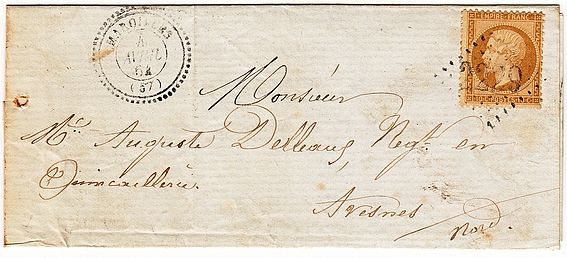 MAROILLES
4
AVRIL
64
(57)
EMPIRE FRANC
Monsieur
Mr. Auguste Delleaux, Negt. en
Quincaillerie.
Avesnes
Nord.